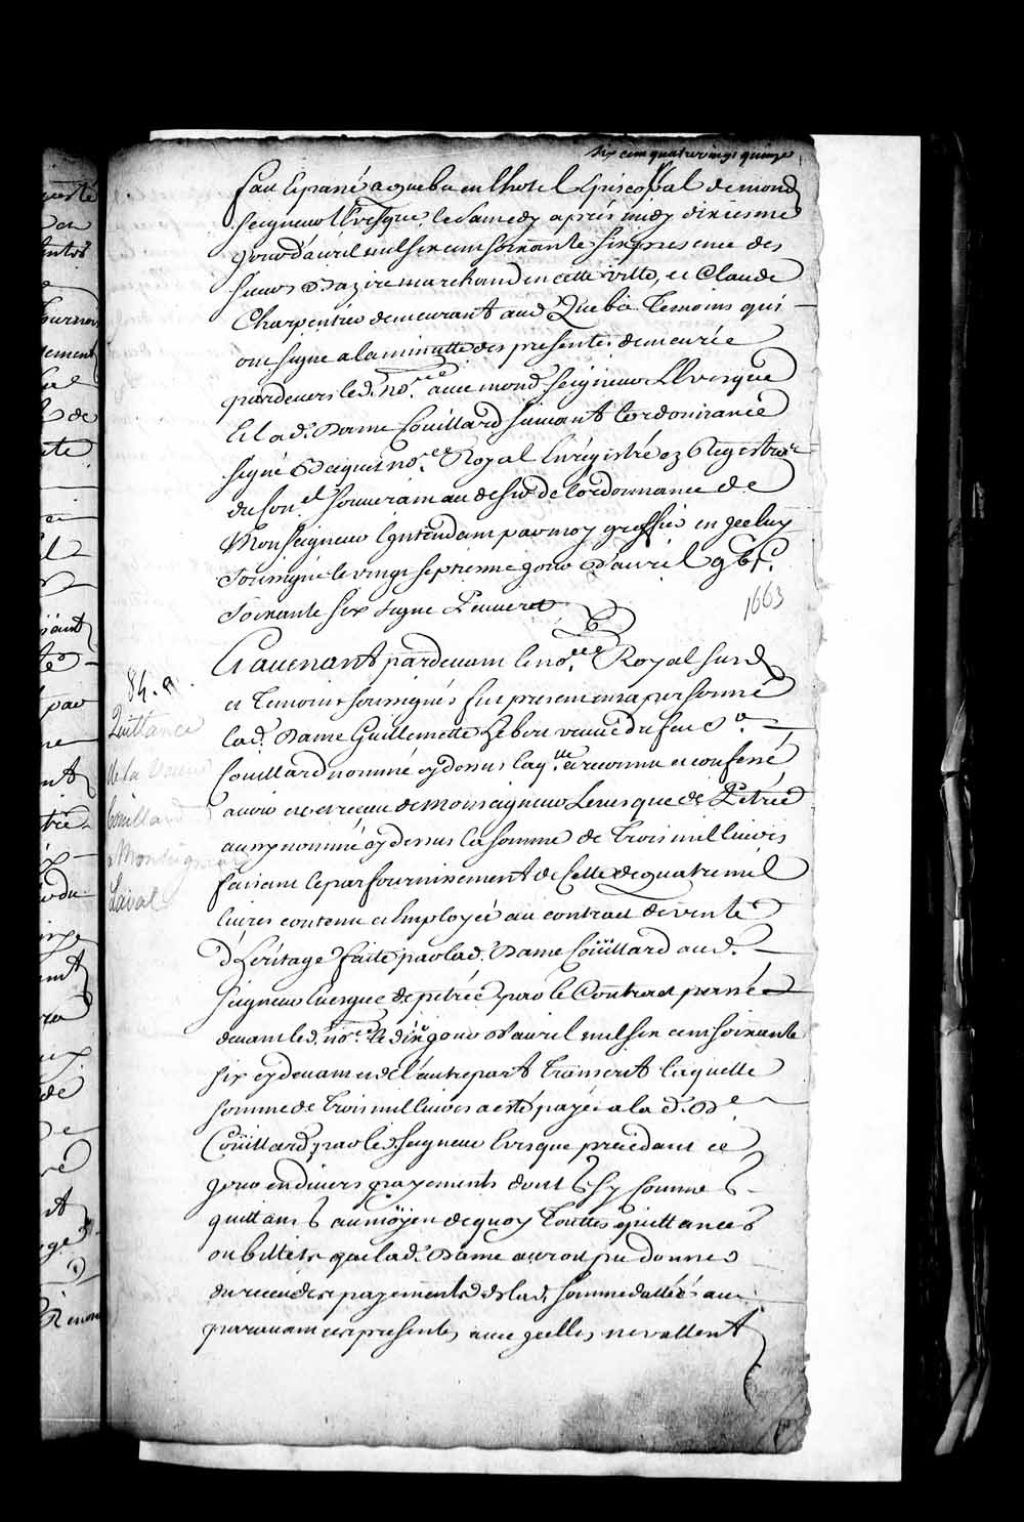 six cent quatre vingt quinze
fait et passé a quebec en lhotel Episcopal de mond
seigneur Levesque, le samedy apres midy dixiesme
jour d'avril mil six cent soixante six presence des
sieurs Bazire marchand en cette ville, et Claude
Charpentier demeurant aud Quebec Temoins qui
ont signé a la minutte des presentes demeurée
pardevers led. no.re avec mond. seigneur Levesque
et lad. Dame Couillard suivant lordonnance
signé Becquet no.re Royal Enregistré ez Registres
du Con.el souverain au desir de lordonnance de
Monseigneur Lintendant par moy greffier en jceluy
soussigné le vingt septieme jour d'avril
soixante six signé Peuvret
1663
Et avenant pardevant le no.re Royal susd
et Temoins soussignés fut presente en sa personne
lad. Dame Guillemette Hebert veuve du feu Sr.
Couillard nommé cy dessus laq.lle a reconnu et confessé
avoir eu et receu de Monseigneur Levesque de Petrée
aussy nommé cy dessus la somme de Trois mil livres
faisant le parfournissement de Celle de quatre mil
livres contenu et Employée au contract de vente
d'héritage faite par lad. Dame Coüillard aud.
seigneur Evesque de petrée par le Contract passé
devant led. no.re le dix.e jour d'avril mil six cent soixante
six cy devant et de l'autre part Transcrit laquelle
somme de Trois mil livres a esté payée a la d. De.
Coüillard par led. seigneur Evesque precedant ce
jour en divers payements dont &
quittant & au moÿen de quoy Touttes quittances
ou billets que lad. Dame auroit pu donner
en receu des payements de lad. somme dattés au
paravant ces presentes avec jcelles ne vallent
84. a.
Quittance
de la Veuve
Couillard
a Monseigneur
Laval